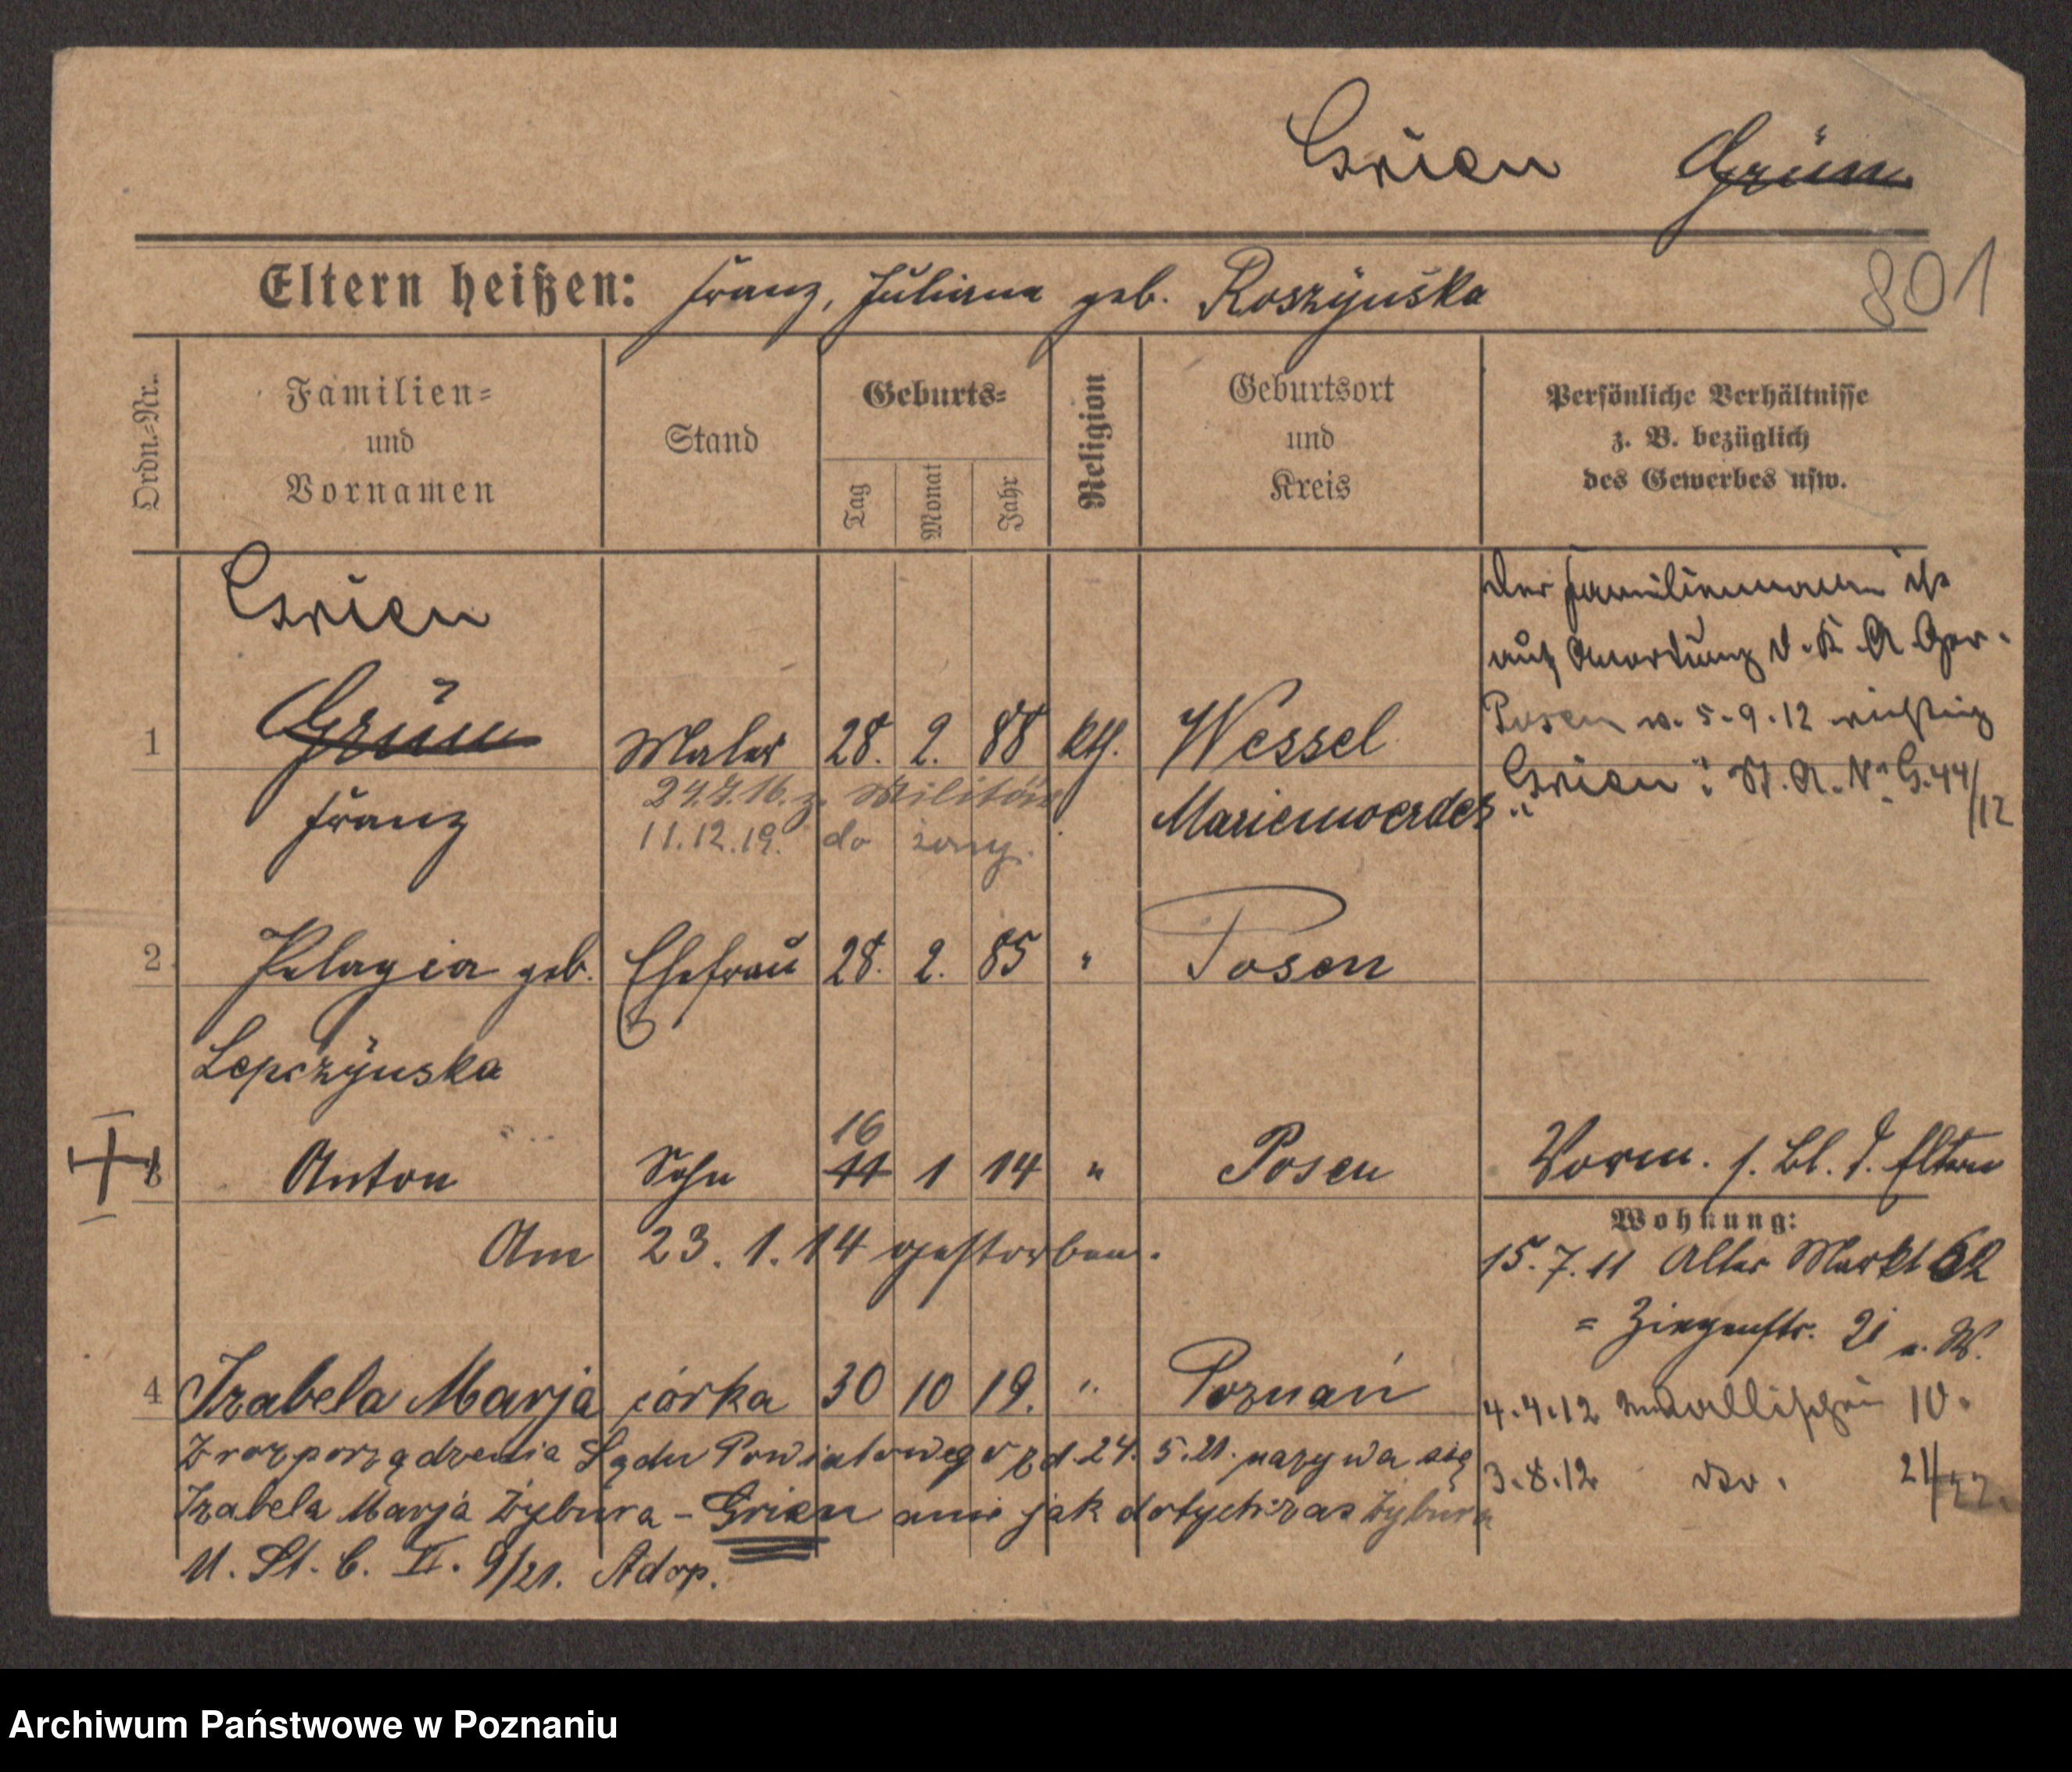 Grien Grün
Eltern heißen: Franz, Juliana geb. Roszÿnska
801
Ordn.-Nr.
Familien=
und
Vornamen
Stand
Geburts=
Tag
Monat
Jahr
Religion
Geburtsort
und
Kreis
Persönliche Verhältnisse
z. B. bezüglich
des Gewerbes usw.
Grien
1 Grün Maler 28. 2. 88 kth. Wessel
Franz Marienwerder
24.7.16. z. Militär
11.12.19. do żony.
Der Familienname ist
auf Anordung d. K. A. Ger.
Posen v. 5.9.12 richtig
"Grien" St. A. No G. 44/12
2 Pelagia geb. Ehefrau 28. 2. 85 " Posen
Lepczÿnska
16
3 Anton Sohn 11 1 14 " Posen Vorm. s. Bl. d. Eltern
Am 23. 1. 14 gestorben.
Wohnung:
15.7.11 Alter Markt 62
= Ziegenstr. 21 b. W.
4 Izabela Marja córka 30 10 19. " Poznań
4.4.12 10.
3.8.12 dto. 21/22.
Z rozporządzenia Sądu Powiatowego z d. 24. 5. 21. nazywa się
Izabela Marja Żybura - Grien a nie jak dotychczas Żybura
U. St. C. II. 9/21. Adop.
Archiwum Państwowe w Poznaniu